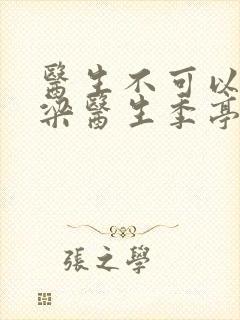 醫生不可以
梁醫生季亭
張之學